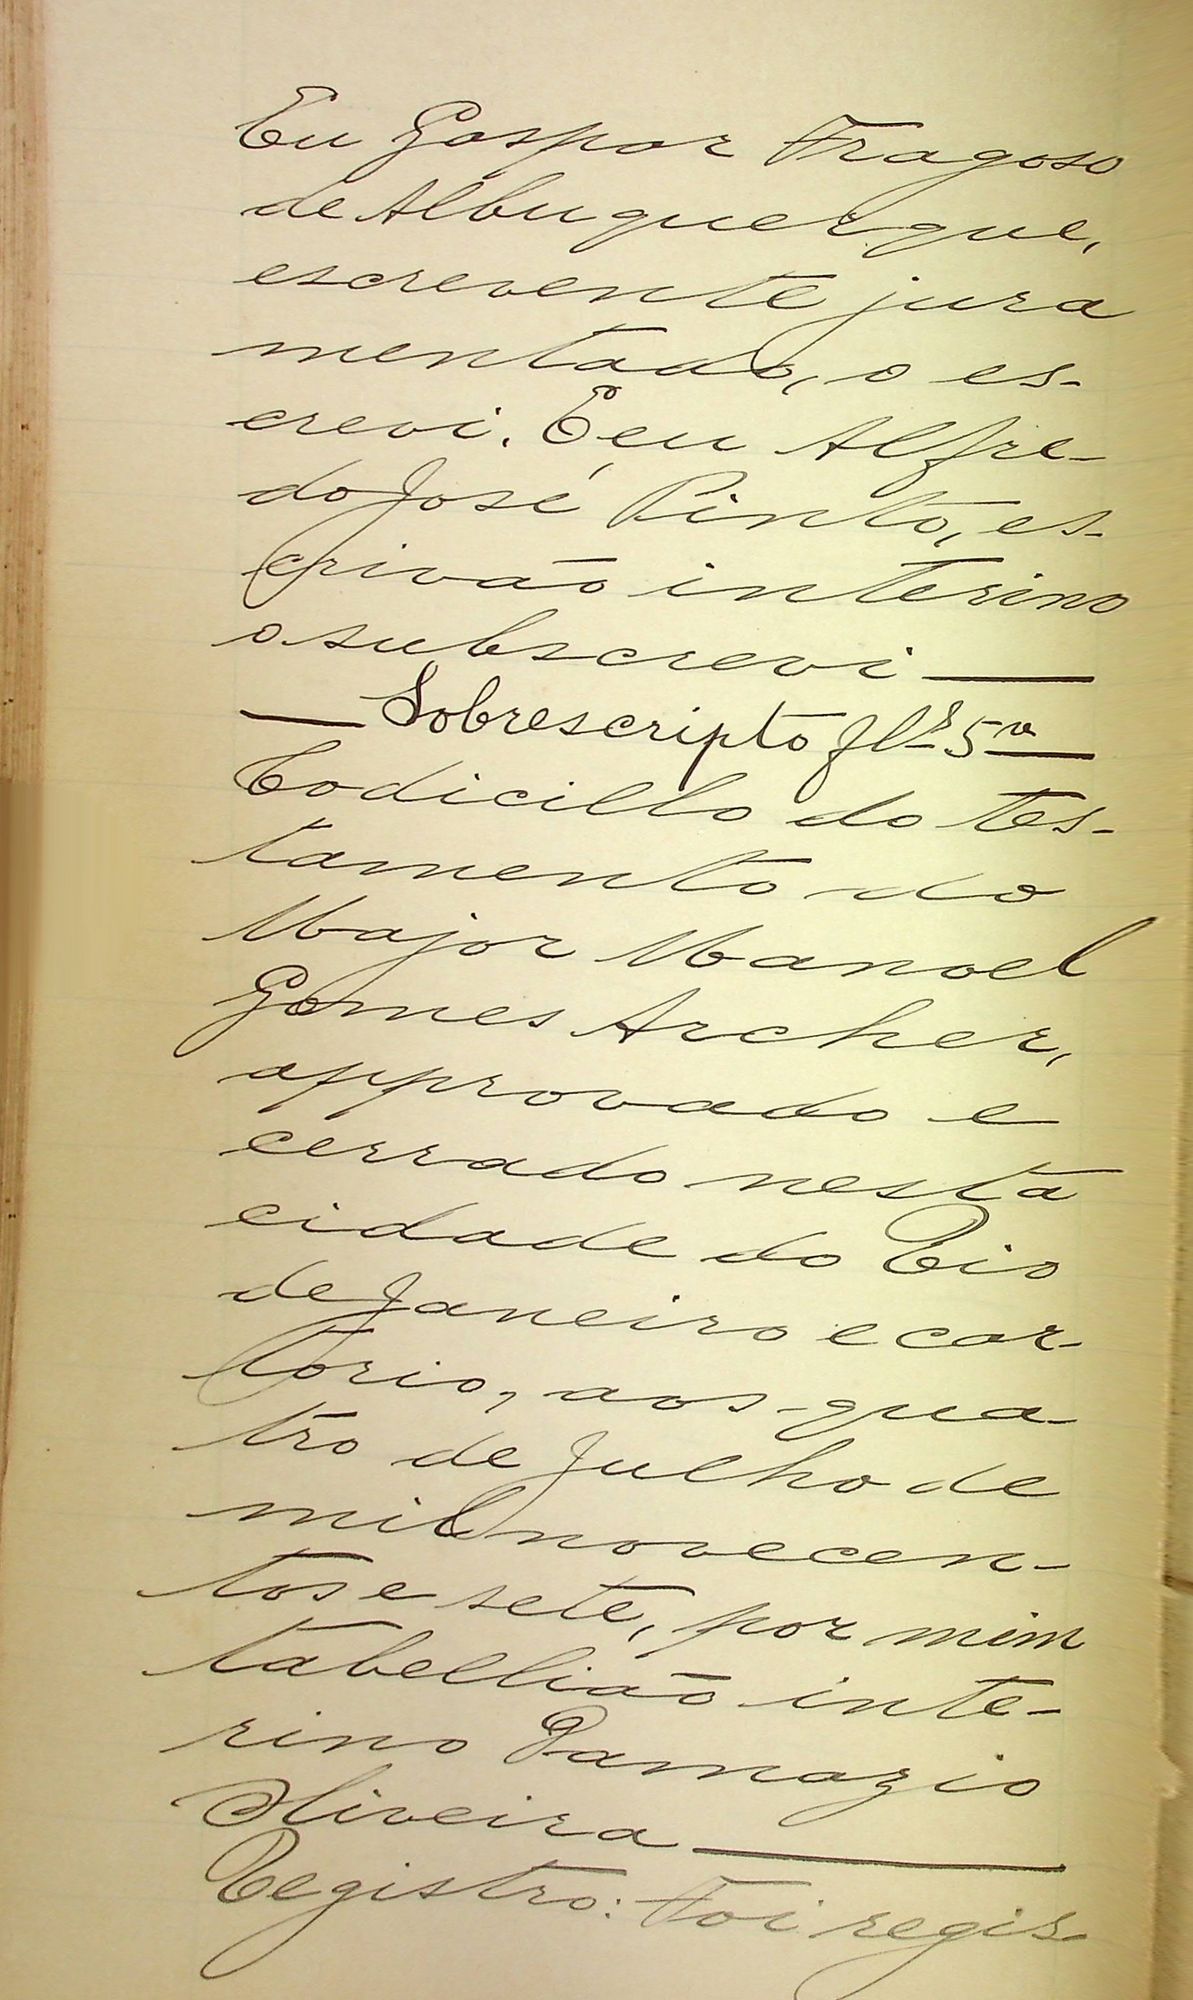 Eu Gaspar Fragoso
de Albuquerque,
escrevente jura
mentado, o es-
crevi. E eu Alfre-
do José Pinto, es-
crivão interino
o subscrevi —
— Sobrescripto fls 5v —
Codicillo do tes-
tamento do
Major Manoel
Gomes Archer,
approvado e
cerrado nesta
cidade do Rio
de Janeiro e car-
torio, aos qua-
tro de Julho de
mil novecen-
tos e sete, por mim
tabellião inte-
rino Damazio
Oliveira —
Registro: Foi regis-